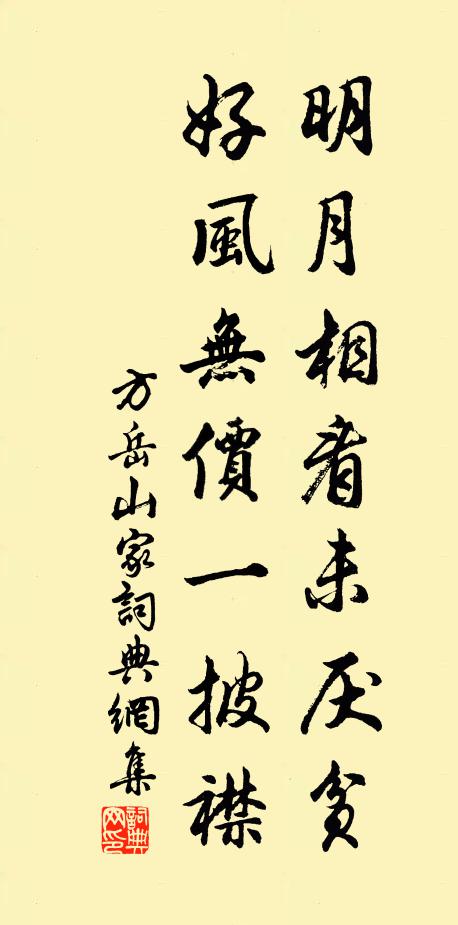 明月相看未厌貧
好風無價一披襟
方岳山家詞典網集
詞典网印